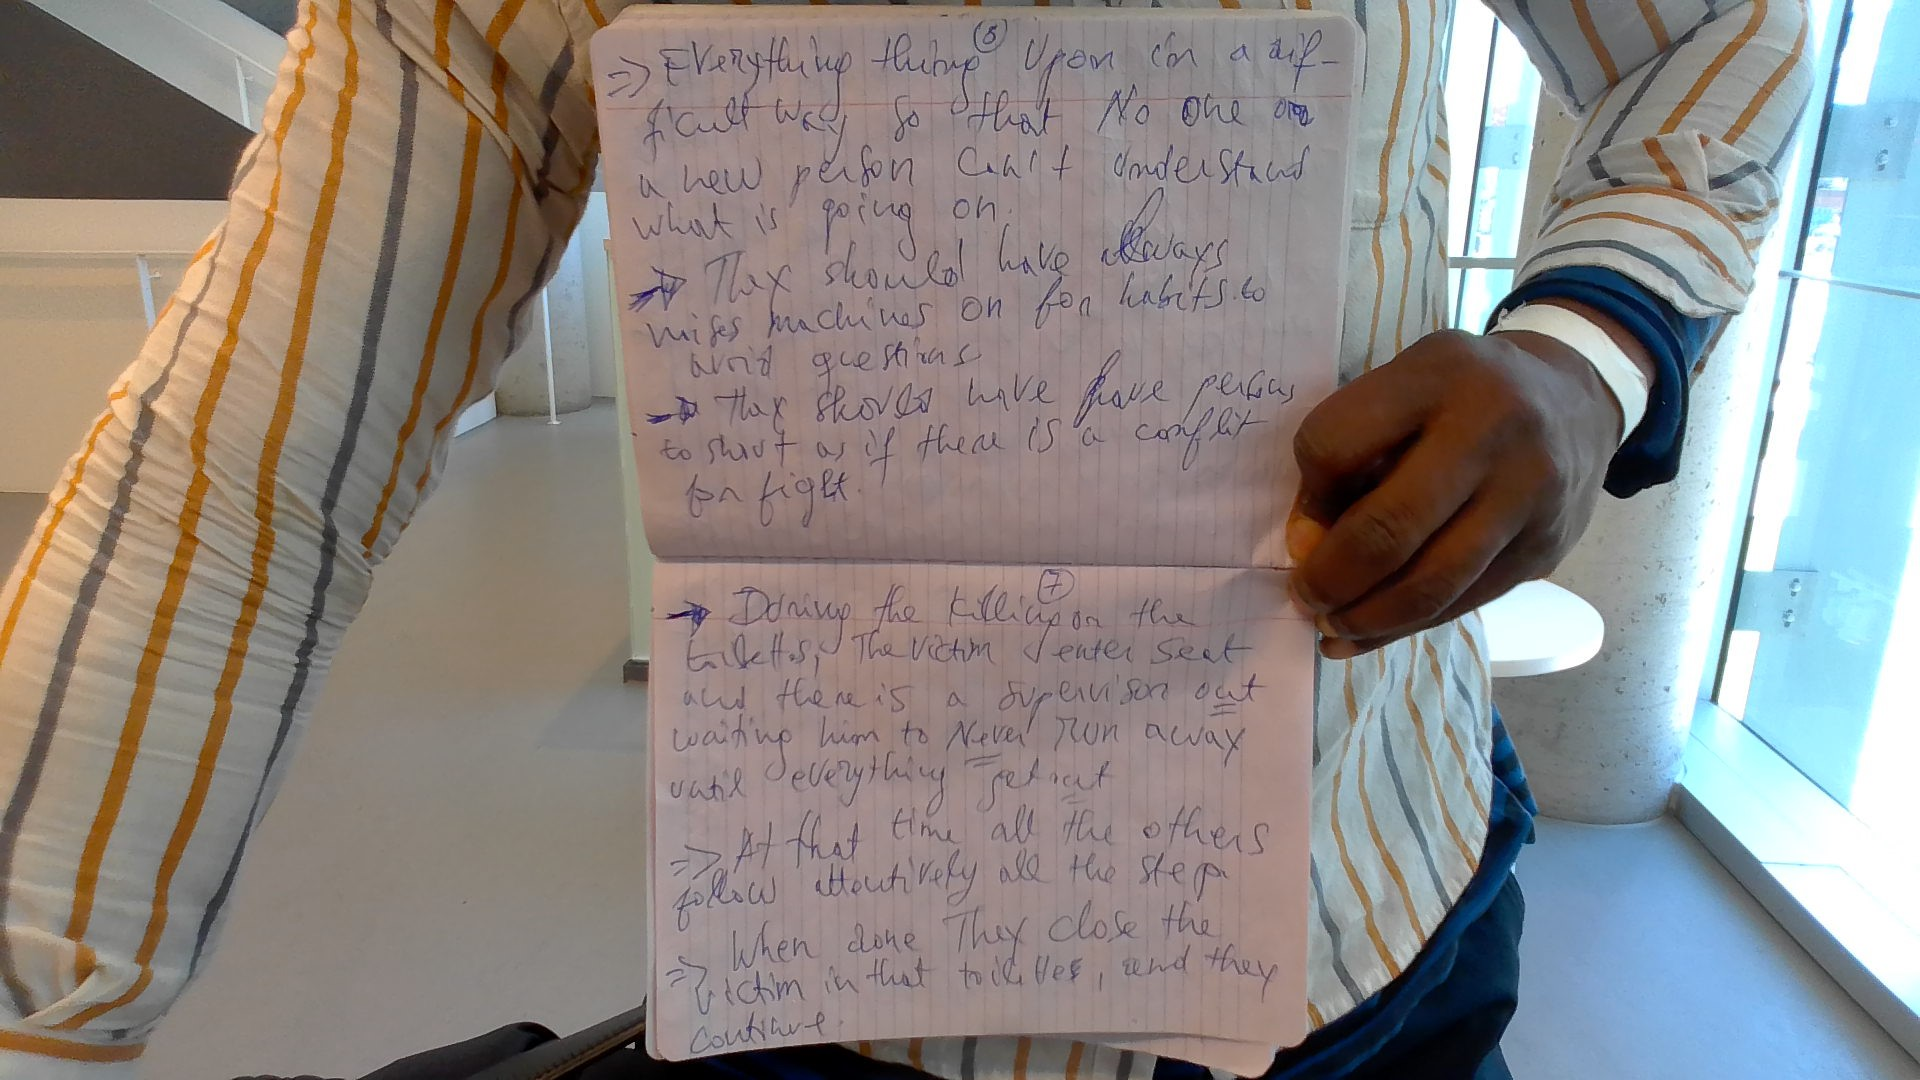 (8)
=> Everything thing Upon in a dif-
ficult way so that No one or
a new person can't understand
what is going on.
→ They should have always
noises machines on for habits to
avoid questions
→ They should have have persons
to shout as if there is a conflit
for fight.
(7)
→ During the killing on the
toiletts, The victim enter seat
and there is a supervisor out
waiting him to Never run away
until everything get out
=> At that time all the others
follow attentively all the step.
=> When done They close the
victim in that toilettes, and they
continue.